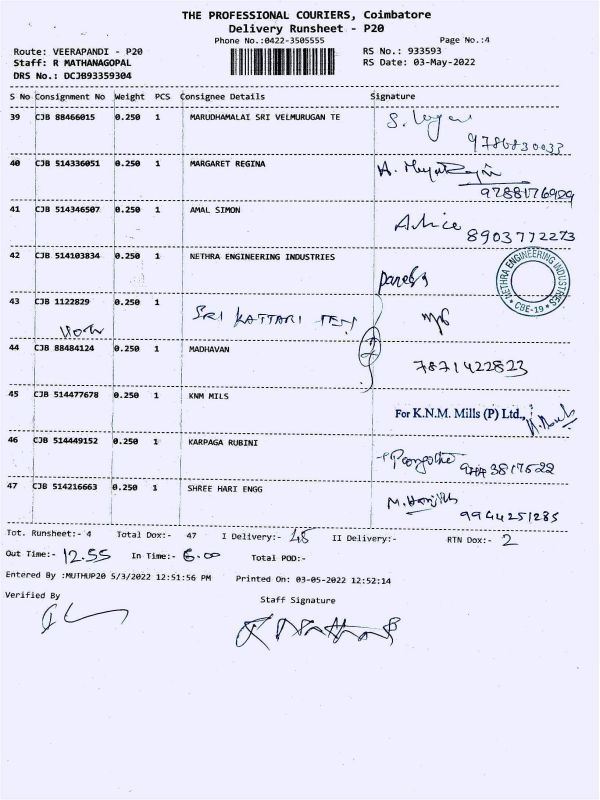 THE PROFESSIONAL COURIERS, Coimbatore
Delivery Runsheet - P20
Phone No.:0422-3505555 Page No.:4
Route: VEERAPANDI - P20 RS No.: 933593
Staff: R MATHANAGOPAL RS Date: 03-May-2022
DRS No.: DCJB93359304
S No Consignment No Weight PCS Consignee Details Signature
39 CJB 88466015 0.250 1 MARUDHAMALAI SRI VELMURUGAN TE
9786830033
40 CJB 514336051 0.250 1 MARGARET REGINA
9788176929
41 CJB 514346507 0.250 1 AMAL SIMON
8903772273
42 CJB 514103834 0.250 1 NETHRA ENGINEERING INDUSTRIES
NETHRA ENGINEERING INDUSTRIES CBE-19
43 CJB 1122829 0.250 1 SRI KATTARI TEX
44 CJB 88484124 0.250 1 MADHAVAN 7871422823
45 CJB 514477678 0.250 1 KNM MILS
For K.N.M. Mills (P) Ltd.,
46 CJB 514449152 0.250 1 KARPAGA RUBINI
47 CJB 514216663 0.250 1 SHREE HARI ENGG
9944251285
Tot. Runsheet:- 4 Total Dox:- 47 I Delivery:- 45 II Delivery:- RTN Dox:- 2
Out Time:- 12.55 In Time:- 6.00 Total POD:-
Entered By :MUTHUP20 5/3/2022 12:51:56 PM Printed On: 03-05-2022 12:52:14
Verified By Staff Signature